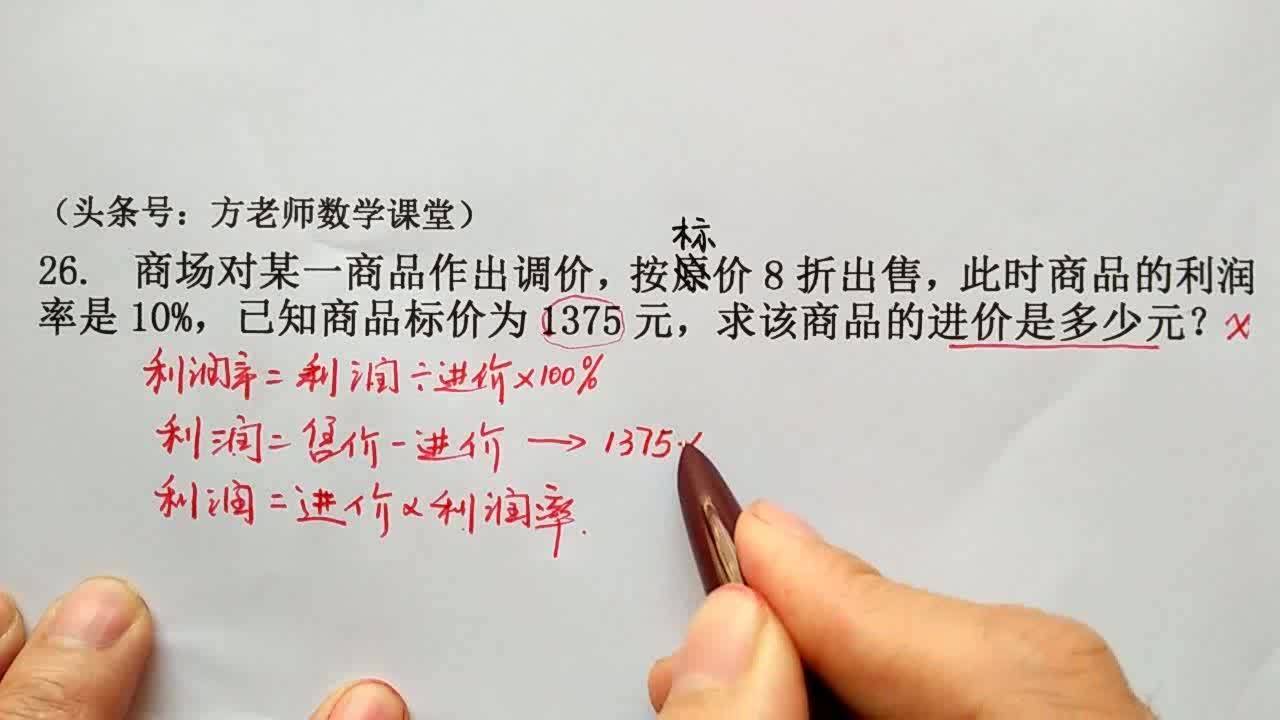 （头条号：方老师数学课堂）
标
26. 商场对某一商品作出调价，按原价 8 折出售，此时商品的利润
率是 10%，已知商品标价为 1375 元，求该商品的进价是多少元？ x
利润率 = 利润 ÷ 进价 × 100%
利润 = 售价 - 进价 → 1375 ×
利润 = 进价 × 利润率.